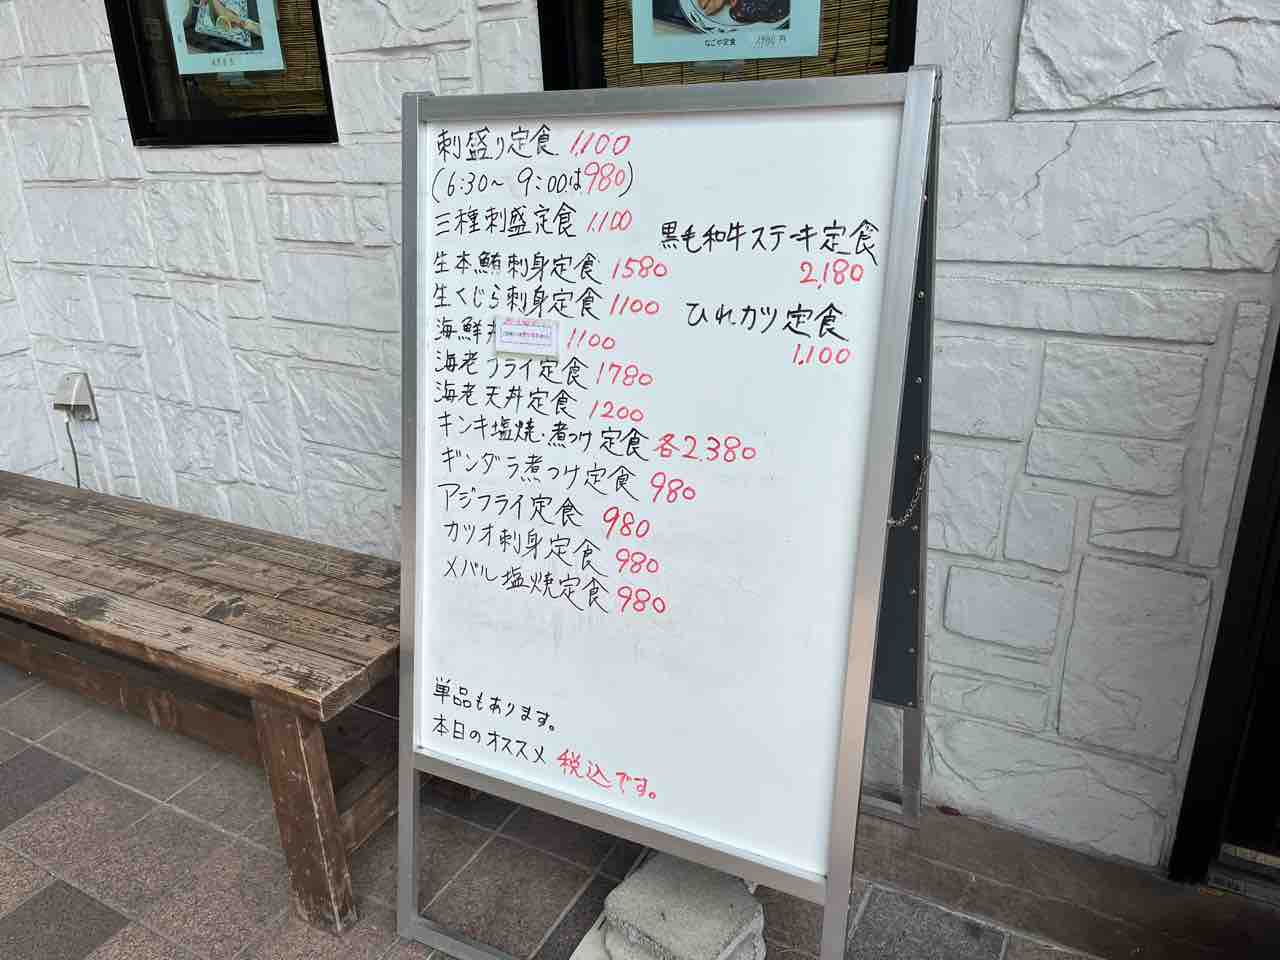 なごや定食 1980円
刺盛り定食 1,100
(6:30〜9:00は980)
三種刺盛定食 1,100
生本鮪刺身定食 1580
生くじら刺身定食 1100
海鮮 1100
海老フライ定食 1780
海老天丼定食 1200
キンキ塩焼・煮つけ定食 各2,380
ギンダラ煮つけ定食 980
アジフライ定食 980
カツオ刺身定食 980
メバル塩焼定食 980
黒毛和牛ステーキ定食
2,180
ひれカツ定食
1,100
単品もあります。
本日のオススメ 税込です。